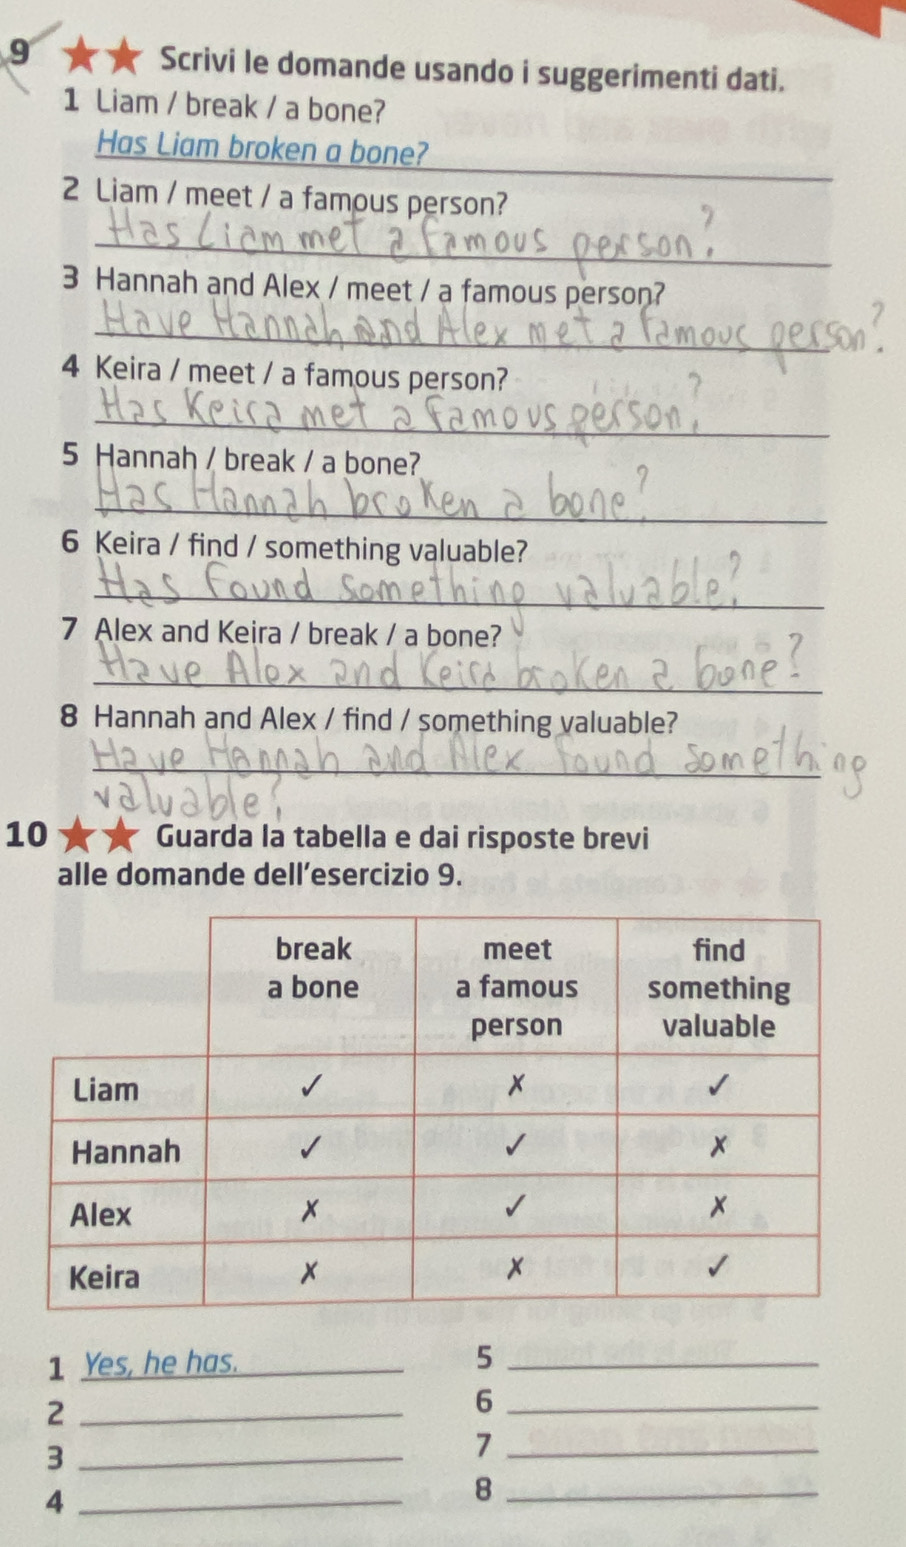 9 ★★ Scrivi le domande usando i suggerimenti dati.
1 Liam / break / a bone?
Has Liam broken a bone?
2 Liam / meet / a famous person?
Has Liam met a famous person?
3 Hannah and Alex / meet / a famous person?
Have Hannah and Alex met a famous person?
4 Keira / meet / a famous person?
Has Keira met a famous person?
5 Hannah / break / a bone?
Has Hannah broken a bone?
6 Keira / find / something valuable?
Has found something valuable?
7 Alex and Keira / break / a bone?
Have Alex and Keira broken a bone?
8 Hannah and Alex / find / something valuable?
Have Hannah and Alex found something
valuable?
10 ★★ Guarda la tabella e dai risposte brevi
alle domande dell'esercizio 9.
break meet find
a bone a famous something
person valuable
Liam ✓ ✗ ✓
Hannah ✓ ✓ ✗
Alex ✗ ✓ ✗
Keira ✗ ✗ ✓
1 Yes, he has. 5
2 6
3 7
4 8